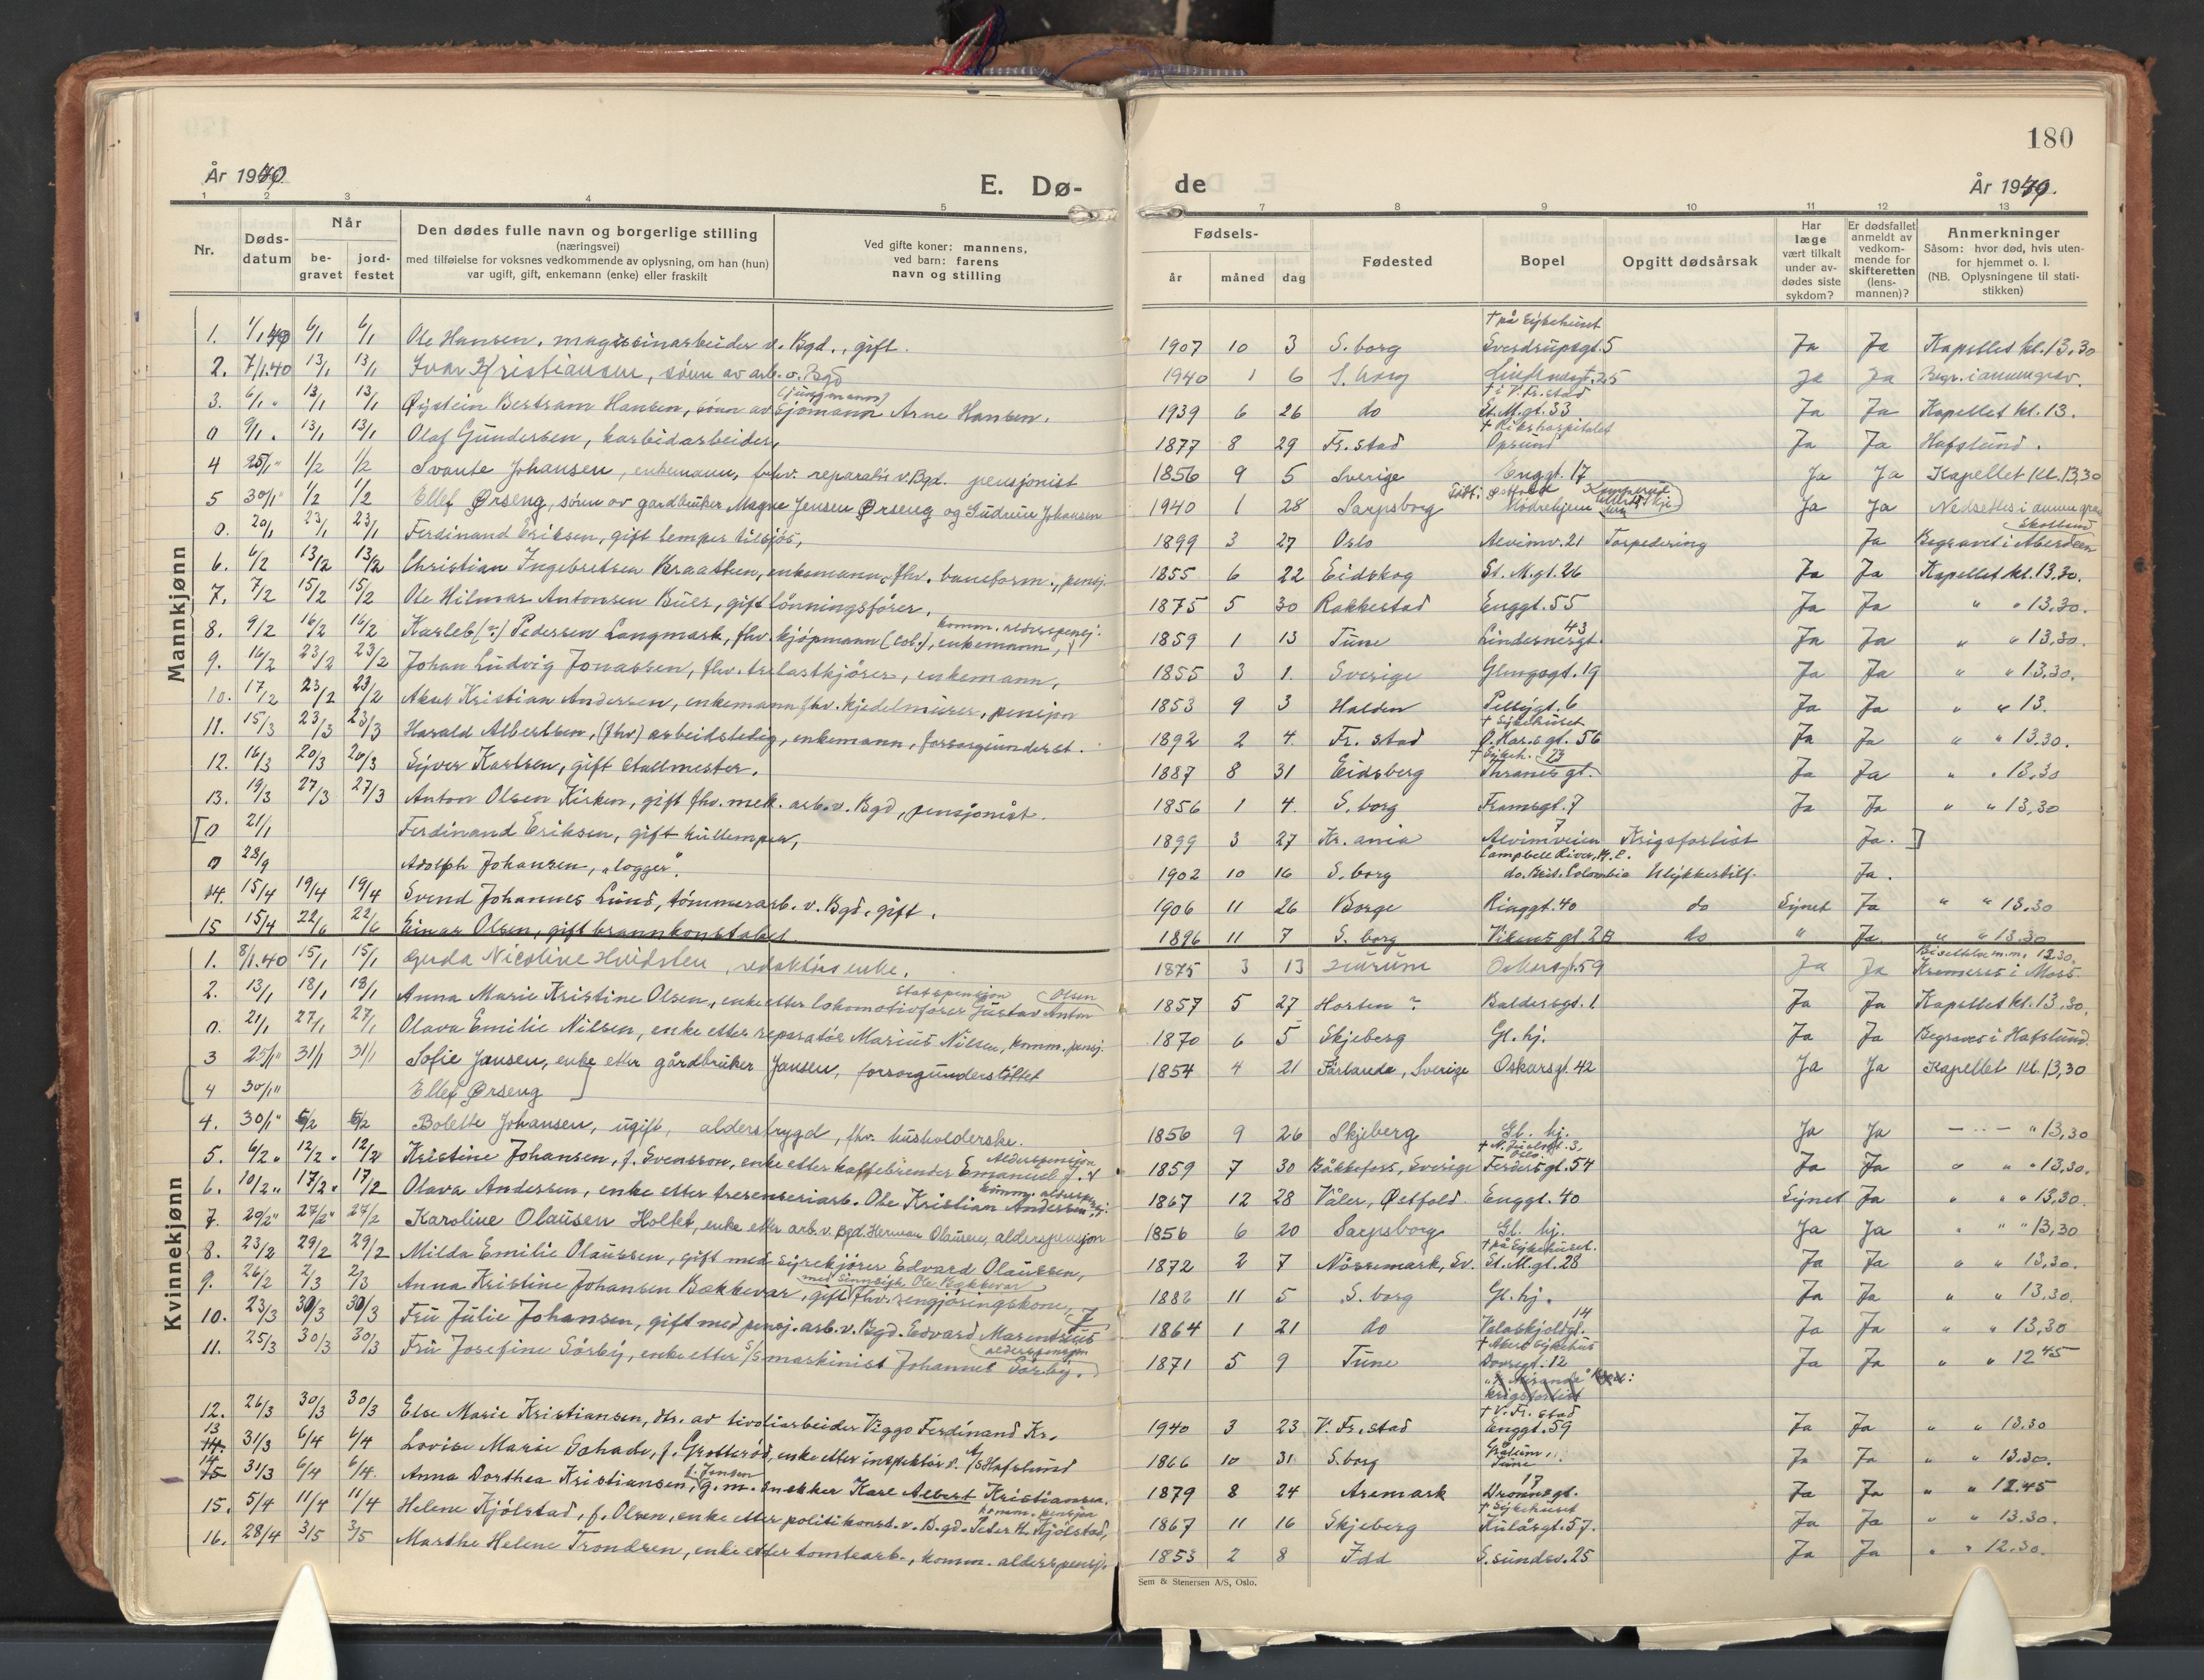 180
År 1940. E. Dø- de År 1940.
1 2 3 4 5 7 8 9 10 11 12 13
Nr. Døds-datum Når begravet jordfestet
Den dødes fulle navn og borgerlige stilling
(næringsvei)
med tilføielse for voksnes vedkommende av oplysning, om han (hun)
var ugift, gift, enkemann (enke) eller fraskilt
Ved gifte koner: mannens,
ved barn: farens
navn og stilling
Fødsels- år måned dag
Fødested Bopel Opgitt dødsårsak
Har læge vært tilkalt under avdødes siste sykdom?
Er dødsfallet anmeldt av vedkommende for skifteretten (lensmannen)?
Anmerkninger
Såsom: hvor død, hvis utenfor hjemmet o. l.
(NB. Oplysningene til statistikken)
Mannkjønn
1. 1/1 40 6/1 6/1 Ole Hansen, magasinarbeider v. Bgd., gift. 1907 10 3 S.borg † på sykehuset Sverdrupsgt. 5 Ja Ja Kapellet kl. 13,30
2. 7/1.40 13/1 13/1 Ivar Kristiansen, sønn av arb. v. Bgd 1940 1 6 S.borg 25 Ja Ja Begr. i annen grav.
3. 6/1 " 13/1 13/1 Øystein Bertram Hansen, sønn av sjømann (jungmann) Arne Hansen. 1939 6 26 do † i V. Fr.stad St. M.gt. 33 Ja Ja Kapellet kl. 13.
0 9/1 . 13/1 13/1 Olaf Gundersen, karbidarbeider, 1877 8 29 Fr.stad † Rikshospitalet Opsund Ja Ja Hafslund.
4 25/1 " 1/2 1/2 Svante Johansen, enkemann, fhv. reparatør v. Bgd. pensjonist 1856 9 5 Sverige Enggt. 17 Ja Ja Kapellet kl. 13,30
5 30/1 " 1/2 1/2 Ellef Ørseng, sønn av gardbruker Magne Jensen Ørseng og Gudrun Johansen 1940 1 28 Sarpsborg Født: Østfold Mødrehjem Ja Ja Nedsettes i annen grav
0. 20/1 23/1 23/1 Ferdinand Eriksen, gift lemper tilsjøs, 1899 3 27 Oslo Alvimv. 21 Torpedering Ja Begravet i Aberdeen Skottland
6. 6/2 13/2 13/2 Christian Ingebretsen Braathen, enkemann, fhv. baneform., pensj. 1855 6 22 Eidskog St. M.gt. 26 Ja Ja Kapellet kl. 13,30.
7. 7/2 15/2 15/2 Ole Hilmar Antonsen Buer, gift lønningsfører. 1875 5 30 Rakkestad Enggt. 55 Ja Ja " " 13,30.
8. 9/2 16/2 16/2 Karleb (?) Pedersen Langmark, fhv. kjøpmann (col.), enkemann, komm. alderspensj. 1859 1 13 Tune Lindernesgt. 43 Ja Ja " " 13,30.
9. 16/2 23/2 23/2 Johan Ludvig Jonassen, fhv. trelastkjører, enkemann, 1855 3 1. Sverige Glengsgt. 19 Ja Ja " " 13,30.
10. 17/2 23/2 23/2 Aksel Kristian Andersen, enkemann fhv. kjedelmurer, pensjon 1853 9 3 Halden Pellygt. 6 Ja Ja " " 13.
11. 15/3 23/3 23/3 Harald Albertsen, (fhv) arbeidsledig, enkemann, forsorgsunderst. 1892 2 4. Fr. stad † Sykehuset O. Har.s gt. 56 Ja Ja " " 13.30.
12. 16/3 20/3 20/3 Syver Karlsen, gift stallmester. 1887 8 31 Eidsberg † Sykeh. Thranes gt. 23 Ja Ja " " 13,30
13. 19/3 27/3 27/3 Anton Olsen Kirken, gift fhv. mek. arb. v. Bgd, pensjonist. 1856 1 4. S.borg Framsgt. 7 Ja Ja " " 13,30
[0 21/1 Ferdinand Eriksen, gift kullemper, 1899 3 27 Kr.ania Alvimveien 7 Krigsforlist Ja. ]
0 28/9 Adolph Johansen, "logger". 1902 10 16 S.borg Campbell River, B.C. do. Brit. Colombia Ulykkestilf. Ja.
14. 15/4 19/4 19/4 Svend Johannes Lund, tømmerarb. v. Bgd, gift. 1906 11 26 Borge Ringgt. 40 do Synet Ja " " 13.30
15 15/4 22/6 22/6 Einar Olsen, gift brannkonstabel. 1896 11 7 S.borg Vikens gt. 28 do " Ja " " 13.30
Kvinnekjønn
1. 8/1.40 15/1 15/1 Gerda Nicoline Hvidsten, redaktørs enke. 1875 3 13 Hurum Oskarsgt. 59 Ja Ja 12.30. Kremeres i Moss
2. 13/1 18/1 18/1 Anna Marie Kristine Olsen, enke etter lokomotivfører Gustav Anton Olsen Statspensjon 1857 5 27 Horten ? Baldersgt. 1 Ja Ja Kapellet kl. 13,30.
0. 21/1 27/1 27/1 Olava Emilie Nilsen, enke etter reparatør Marius Nilsen, komm. pensj. 1870 6 5 Skjeberg Gl. hj. Ja Ja Begraves i Hafslund.
3 25/1 " 31/1 31/1 Sofie Jansen, enke etter gårdbruker Jansen, forsorgunderstøttet 1854 4 21 Färlanda, Sverige Oskarsgt. 42 Ja Ja Kapellet kl. 13,30
[4 30/1 " Ellef Ørseng ]
4. 30/1 " 5/2 5/2 Bolette Johansen, ugift, alderstrygd, fhv. husholderske. 1856 9 26 Skjeberg Gl. hj. Ja Ja — " — " 13,30
5. 6/2 " 12/2 " 12/2 Kristine Johansen, f. Svensson, enke etter kaffebrenner Emanuel J. Alderspensjon 1859 7 30 Bäkkefors, Sverige Oslo. Ferders gt. 54 Ja Ja " " " 13,30.
6. 10/2 " 17/2 " 17/2 Olava Andersen, enke etter tresenseriarb. Ole Kristian Andersen komm. alderspensj. 1867 12 28 Våler, Østfold Enggt. 40 Synet Ja " " " 13,30.
7. 20/2 " 27/2 " 27/2 Karoline Olausen Holtet, enke etter arb. v. Bgd. Herman Olausen, alderspensjon 1856 6 20 Sarpsborg Gl. hj. Ja Ja " " " 13,30
8. 23/2 29/2 29/2 Milda Emilie Olaussen, gift med syrekjører Edvard Olaussen, 1872 2 7 Nössemark, Sv. † på Sykehuset. St. M.gt. 28 Ja Ja " " 13,30.
9. 26/2 2/3 2/3 Anna Kristine Johansen Bækkevar, gift fhv. rengjøringskone, med sinnssyk Ole Bækkevar 1882 11 5 S.borg Gl. hj. Ja Ja " " 13,30.
10. 23/3 30/3 30/3 Fru Julie Johansen, gift med pensj. arb. v. Bgd. Edvard Marentius J. 1864 1 21 do Valaskjoldgt. 14 Ja Ja " " 13,30
11. 25/3 30/3 30/3 Fru Josefine Sørby, enke etter S/S maskinist Johannes Sørby. alderspensjon 1871 5 9 Tune † Aker sykehus Dovregt. 12 Ja Ja " " 12 45
12. 26/3 30/3 30/3 Else Marie Kristiansen, dtr. av tivoliarbeider Viggo Ferdinand Kr. 1940 3 23 V. Fr.stad † V. Fr. stad Enggt. 59 Ja Ja " " 13.30
13 31/3 6/4 6/4 Lovise Marie Schade, f. Grotterød, enke etter inspektør v. A/S Hafslund 1866 10 31 S.borg Grålum, Tune Ja Ja " " 13.30.
14 31/3 6/4 6/4. Anna Dorthea Kristiansen, f. Jensen g. m. snekker Karl Albert Kristiansen. 1879 8 24 Aremark Dronn.gt. 17 Ja Ja " " 12.45
15. 5/4 11/4 11/4 Helene Kjølstad, f. Olsen, enke etter politikonst. v. B.gd. Peder H. Kjølstad, komm. pensjon 1867 11 16 Skjeberg † Sykehuset Kulåsgt. 57. Ja Ja " " 13.30.
16. 28/4 3/5 3/5 Marthe Helene Trondsen, enke etter tomtearb., komm. alderspensj. 1853 2 8 Idd S.sundsv. 25 Ja Ja " " 12.30.
Sem & Stenersen A/S, Oslo.